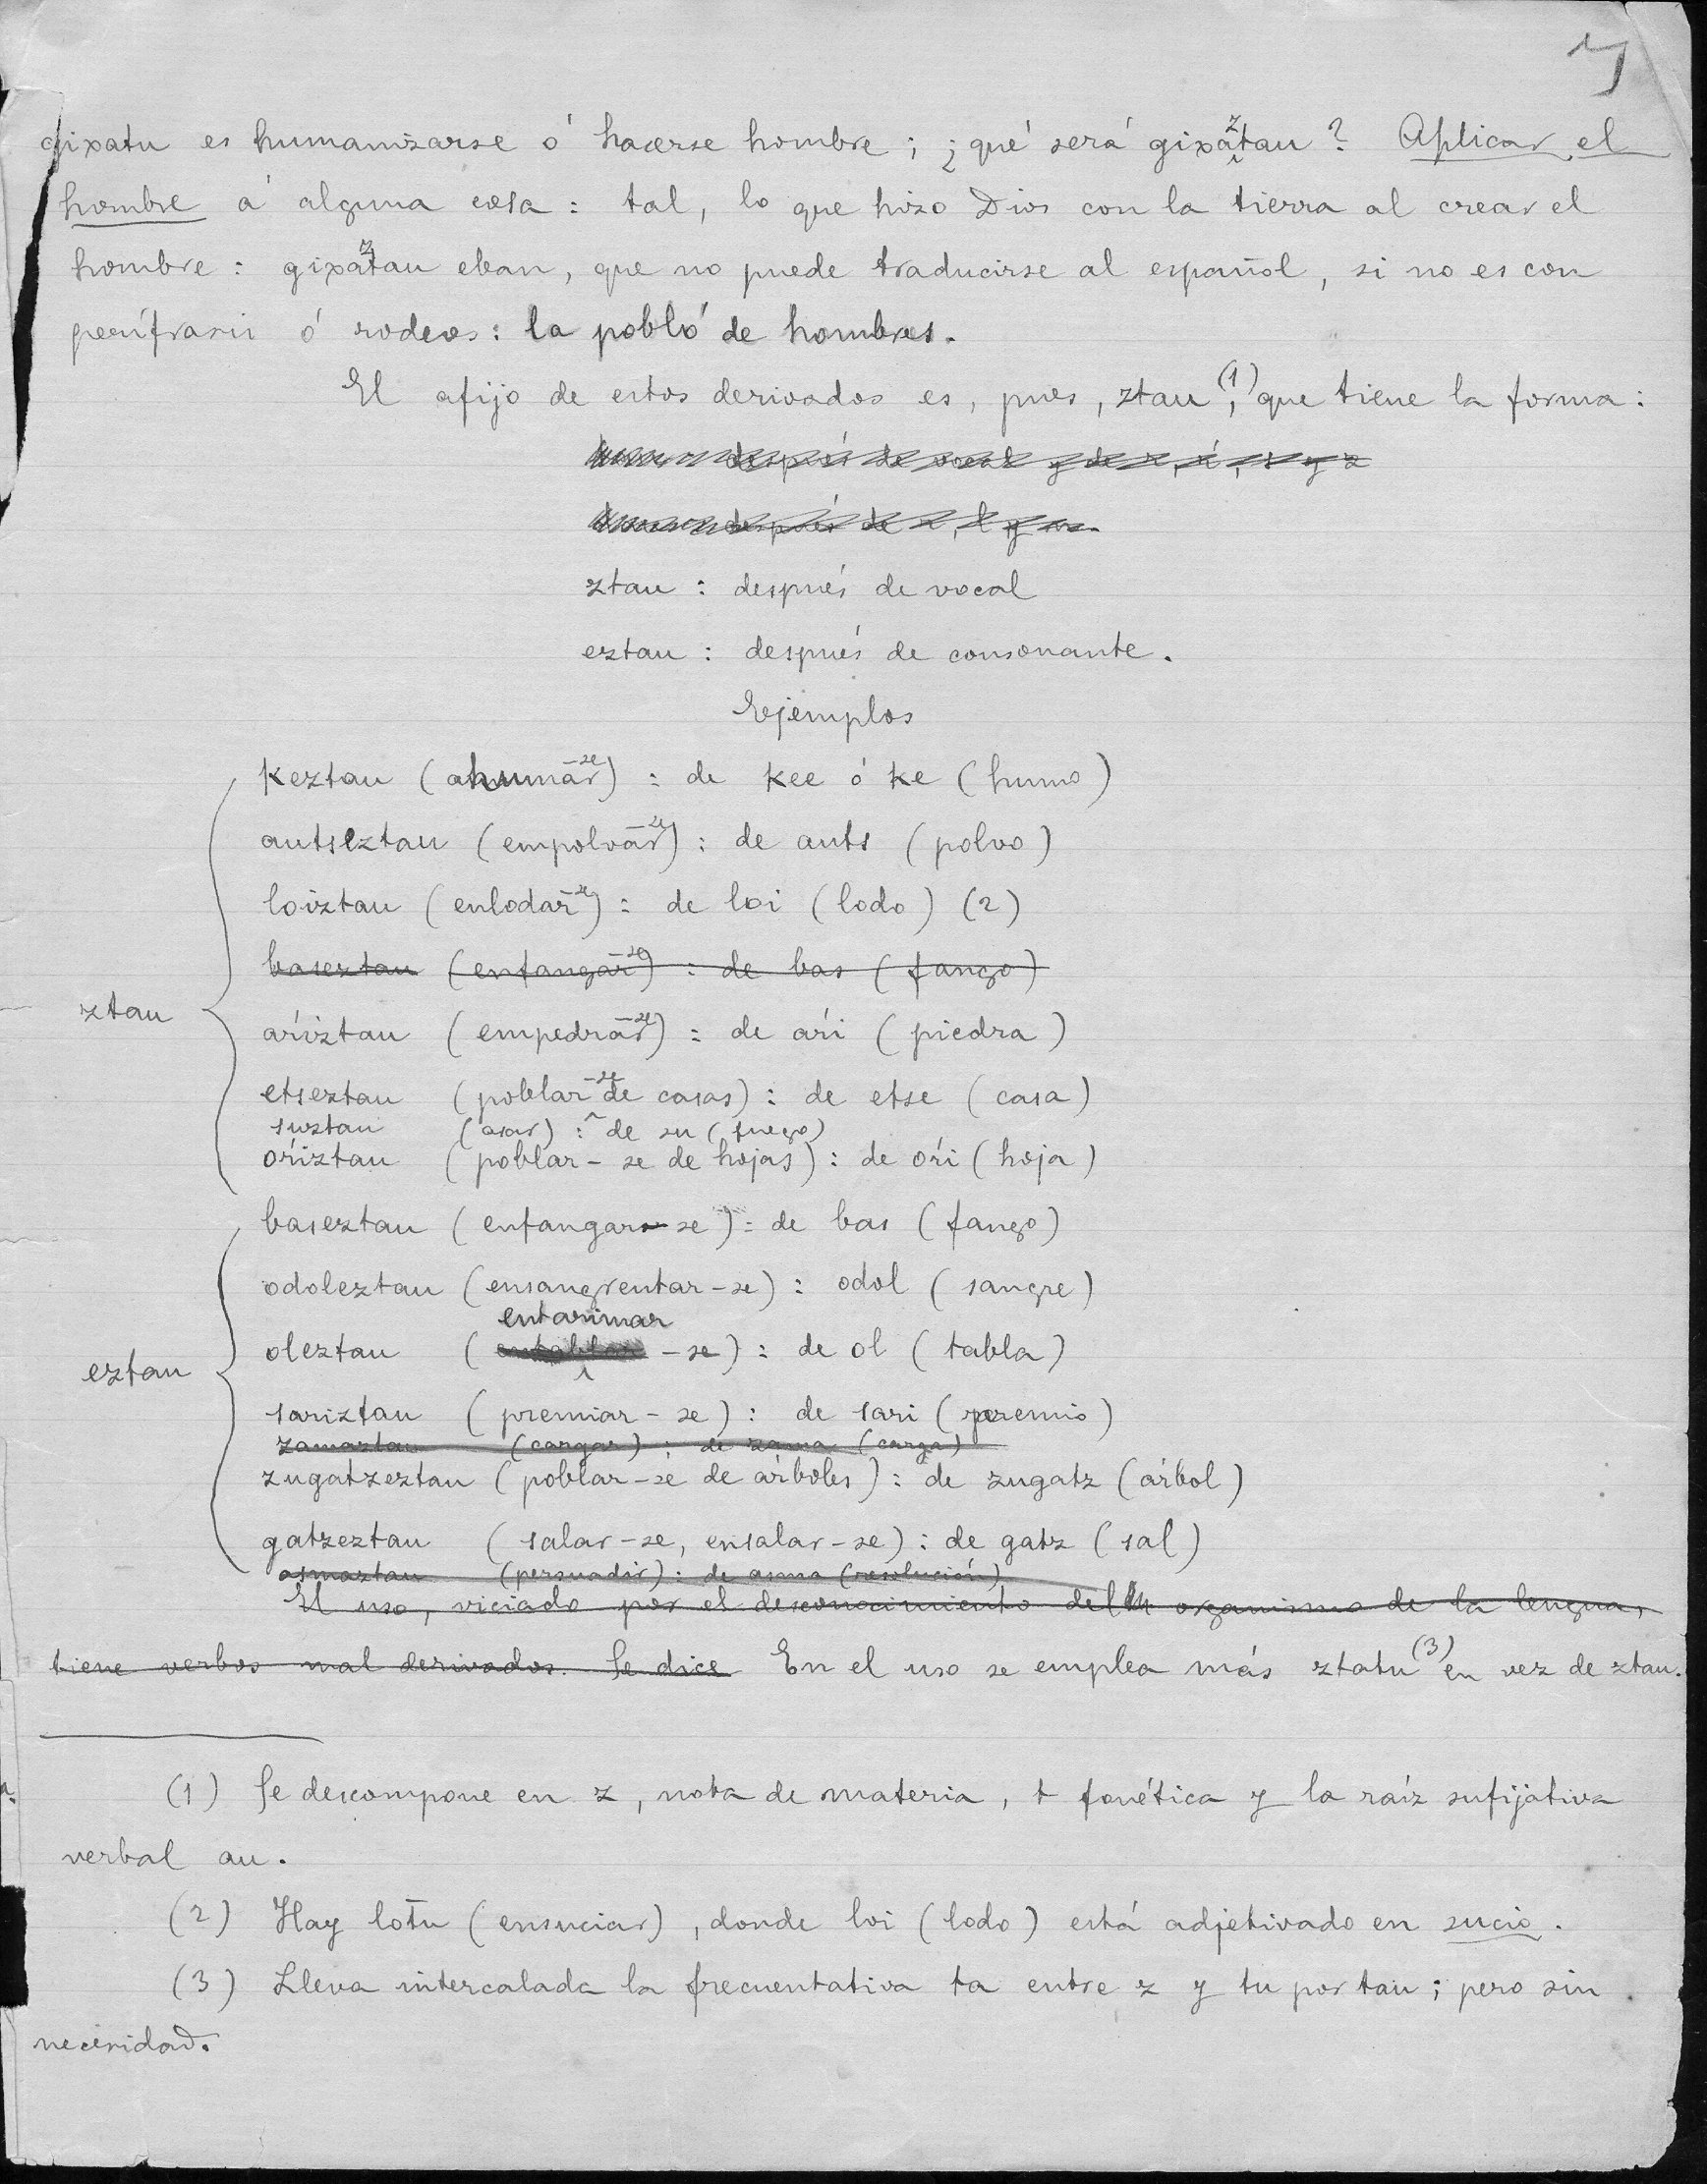 7
gixatu es humanizarse ó hacerse hombre; ¿qué será gixaztau? Aplicar el
hombre á alguna cosa: tal, lo que hizo Dios con la tierra al crear el
hombre: gixaztau eban, que no puede traducirse al español, si no es con
perífrasis ó rodeos: la pobló de hombres.
El afijo de estos derivados es, pues, ztau (1), que tiene la forma:
después de vocal y de
después de
ztau: después de vocal
eztau: después de consonante.
Ejemplos
keztau (ahumar-se): de kee ó ke (humo)
autseztau (empolvar-se): de auts (polvo)
loiztau (enlodar-se): de loi (lodo) (2)
baseztau (enfangar-se): de bas (fango)
ztau
aŕiztau (empedrar-se): de aŕi (piedra)
etseztau (poblar-se de casas): de etse (casa)
suztau (asar): de su (fuego)
oŕiztau (poblar-se de hojas): de oŕi (hoja)
baseztau (enfangar-se): de bas (fango)
odoleztau (ensangrentar-se): odol (sangre)
entarimar
oleztau (-se): de ol (tabla)
eztau
sariztau (premiar-se): de sari (premio)
zamaztau (cargar): de zama (carga)
zugatzeztau (poblar-se de árboles): de zugatz (árbol)
gatzeztau (salar-se, ensalar-se): de gatz (sal)
asmaztau (persuadir): de asma (resolución)
El uso, viciado por el desconocimiento del organismo de la lengua,
tiene verbos mal derivados. Se dice En el uso se emplea más ztatu (3) en vez de ztau.
(1) Se descompone en z, nota de materia, t fonética y la raíz sufijativa
verbal au.
(2) Hay lot̄u (ensuciar), donde loi (lodo) está adjetivado en sucio.
(3) Lleva intercalada la frecuentativa ta entre z y tu por tau; pero sin
necesidad.